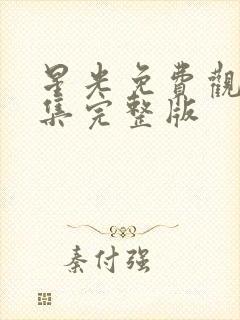 星光免費觀
集完整版
秦付强